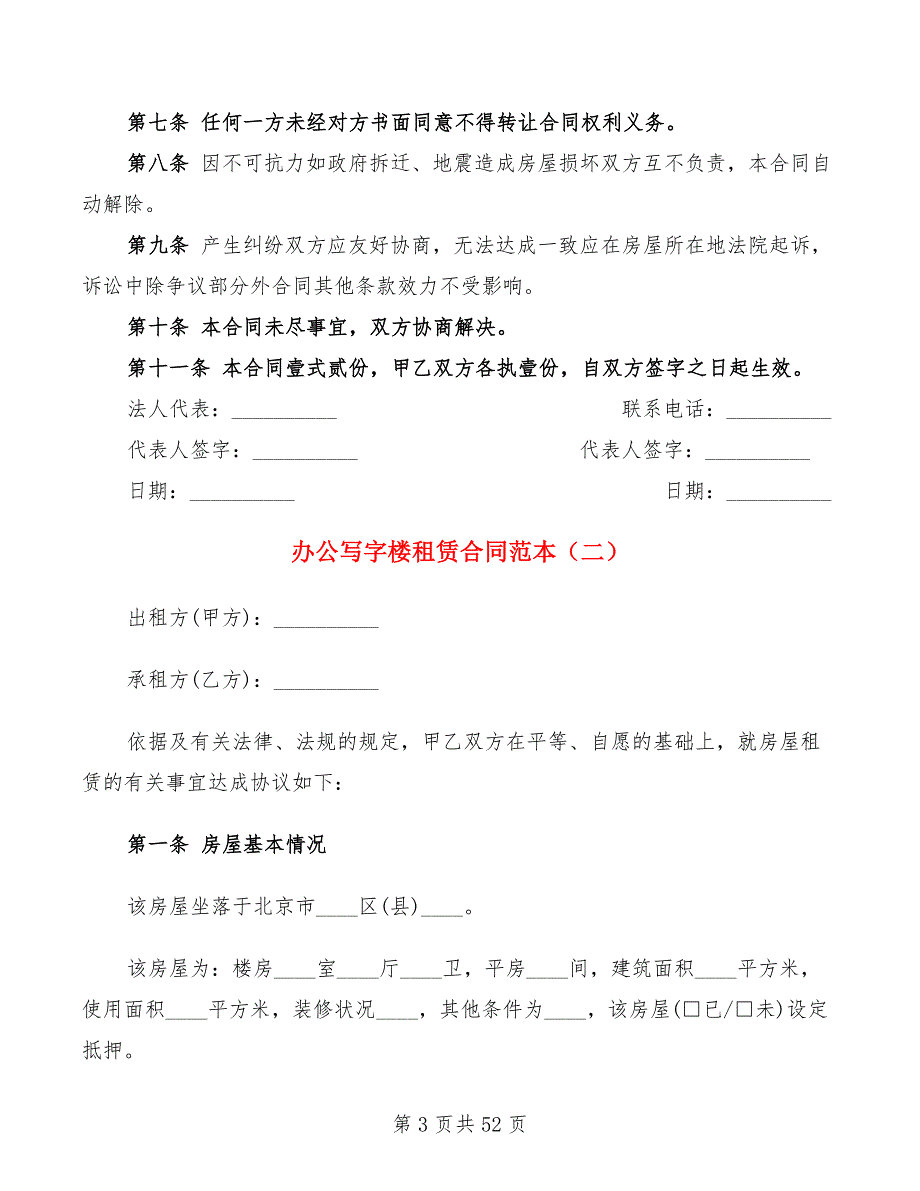 第七条 任何一方未经对方书面同意不得转让合同权利义务。
第八条 因不可抗力如政府拆迁、地震造成房屋损坏双方互不负责，本合同自
动解除。
第九条 产生纠纷双方应友好协商，无法达成一致应在房屋所在地法院起诉，
诉讼中除争议部分外合同其他条款效力不受影响。
第十条 本合同未尽事宜，双方协商解决。
第十一条 本合同壹式贰份，甲乙双方各执壹份，自双方签字之日起生效。
法人代表：__________ 联系电话：__________
代表人签字：__________ 代表人签字：__________
日期：__________ 日期：__________
办公写字楼租赁合同范本（二）
出租方(甲方)：__________
承租方(乙方)：__________
依据及有关法律、法规的规定，甲乙双方在平等、自愿的基础上，就房屋租
赁的有关事宜达成协议如下：
第一条 房屋基本情况
该房屋坐落于北京市____区(县)____。
该房屋为：楼房____室____厅____卫，平房____间，建筑面积____平方米，
使用面积____平方米，装修状况____，其他条件为____，该房屋(□已/□未)设定
抵押。
第 3 页共 52 页